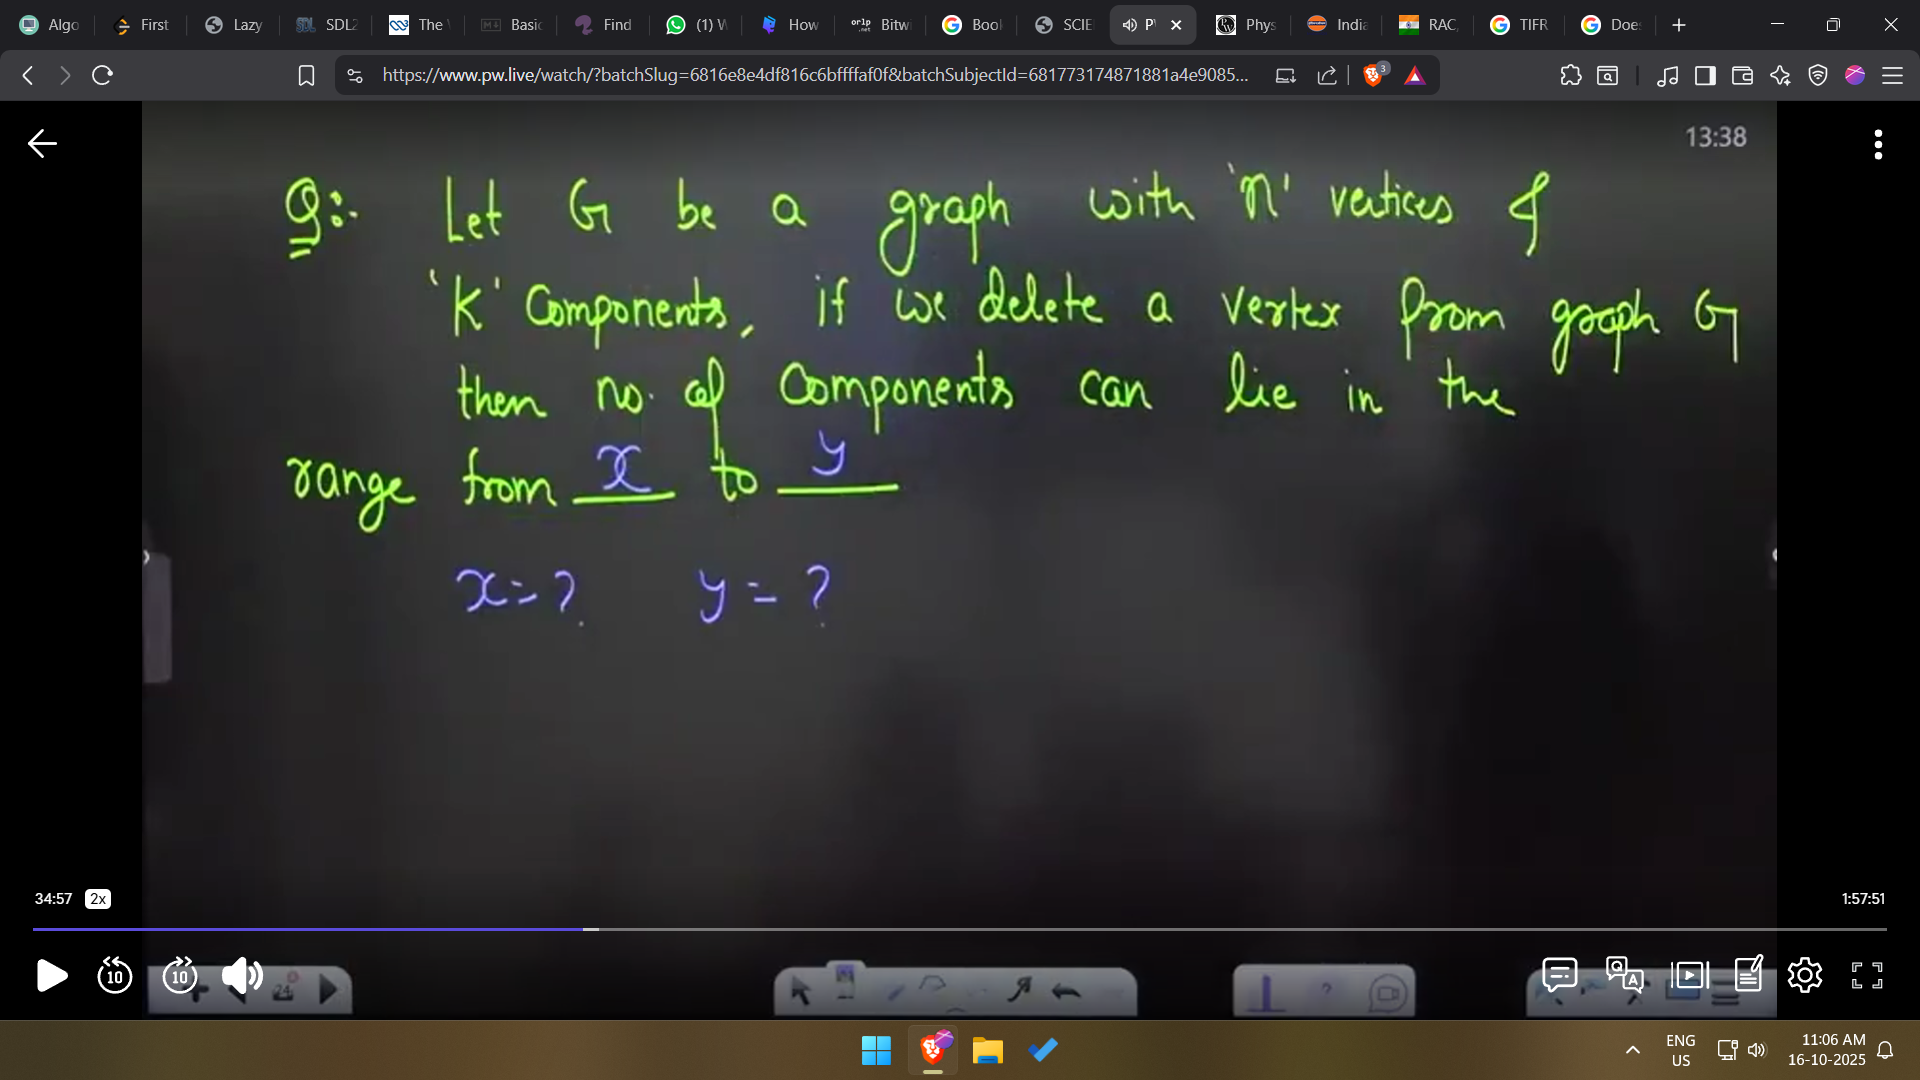 Algo
First
Lazy
SDL2
The
Basic
Find
(1) W
How
orlp .net
Bitw
Book
SCIE
P
Phys
India
RAC,
TIFR
Does
https://www.pw.live/watch/?batchSlug=6816e8e4df816c6bffffaf0f&batchSubjectId=681773174871881a4e9085...
3
13:38
Q:- Let G be a graph with 'n' vertices &
'K' Components, if we delete a vertex from graph G
then no. of Components can lie in the
range from x to y
x=? y=?
34:57 2x
1:57:51
10 10
24
ENG
US
11:06 AM
16-10-2025